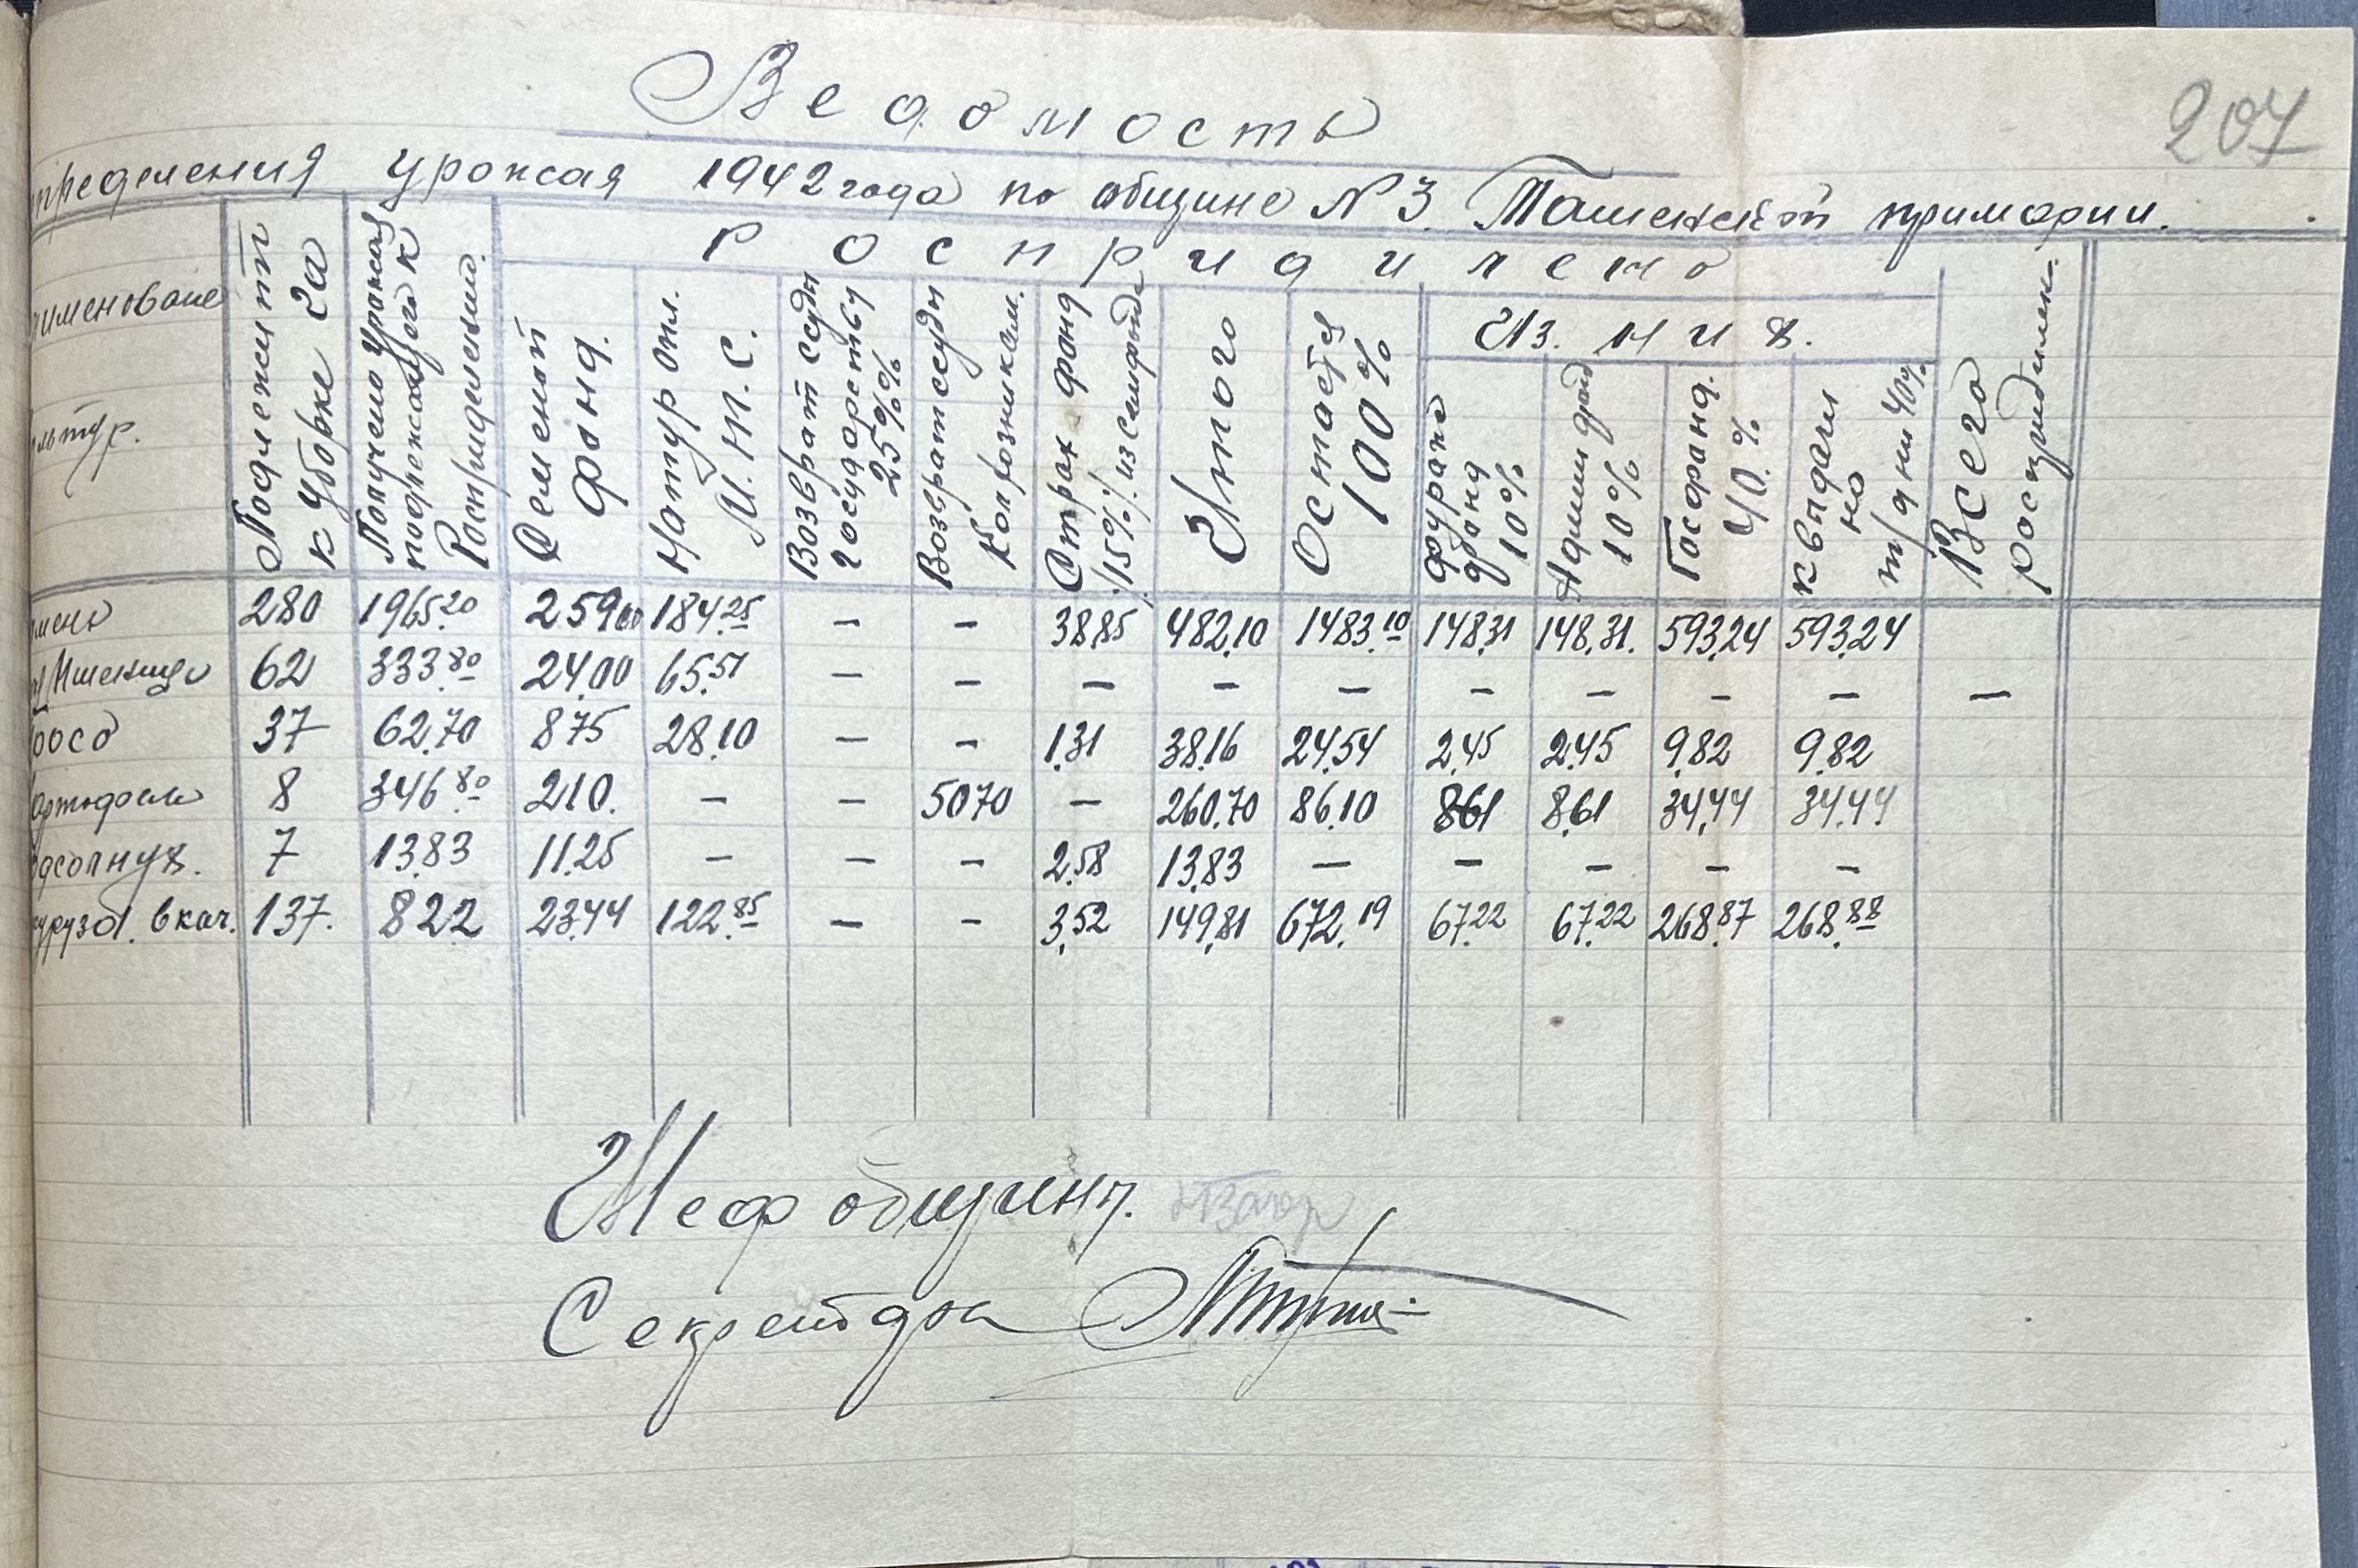 207
Ведомость
пределения урожая 1942 года по общине №3 Ташенской примарии.
именование
льтур.
Подлежит к уборке га
Получено урожая подлежащого к Роспридилению.
Роспридилено
Сементой фонд.
Натур опл. М.т.с.
Возврат ссуды государству 25%%
Возврат ссуды Колхозникам.
Страх фонд /15%/. из семфонда
Итого
Остаётся 100%
Из них.
фураж фонд 10%
Админ фонд 10%
Госфонд. 40.%
к выдачи на т/дни 40%
Всего роспридилен.
мень 280 1965.20 259.00 184.25 – – 38.85 482.10 1483.10 148.31 148.31. 593.24 593.24
Пшеница 62 333.80 24.00 65.51 – – – – – – – – – –
росо 37 62.70 875 28.10 – – 1.31 38.16 24.54 2.45 2.45 9.82 9.82
артофель 8 346.80 210. – – 5070 – 260.70 86.10 861 8.61 34.44 34.44
дсолнух. 7 13.83 11.25 – – – 2.58 13.83 – – – – –
куруза. в кач. 137. 822 23.44 122.85 – – 3.52 149.81 672.19 67.22 67.22 268.87 268.88
Шеф общины.
Секретарь